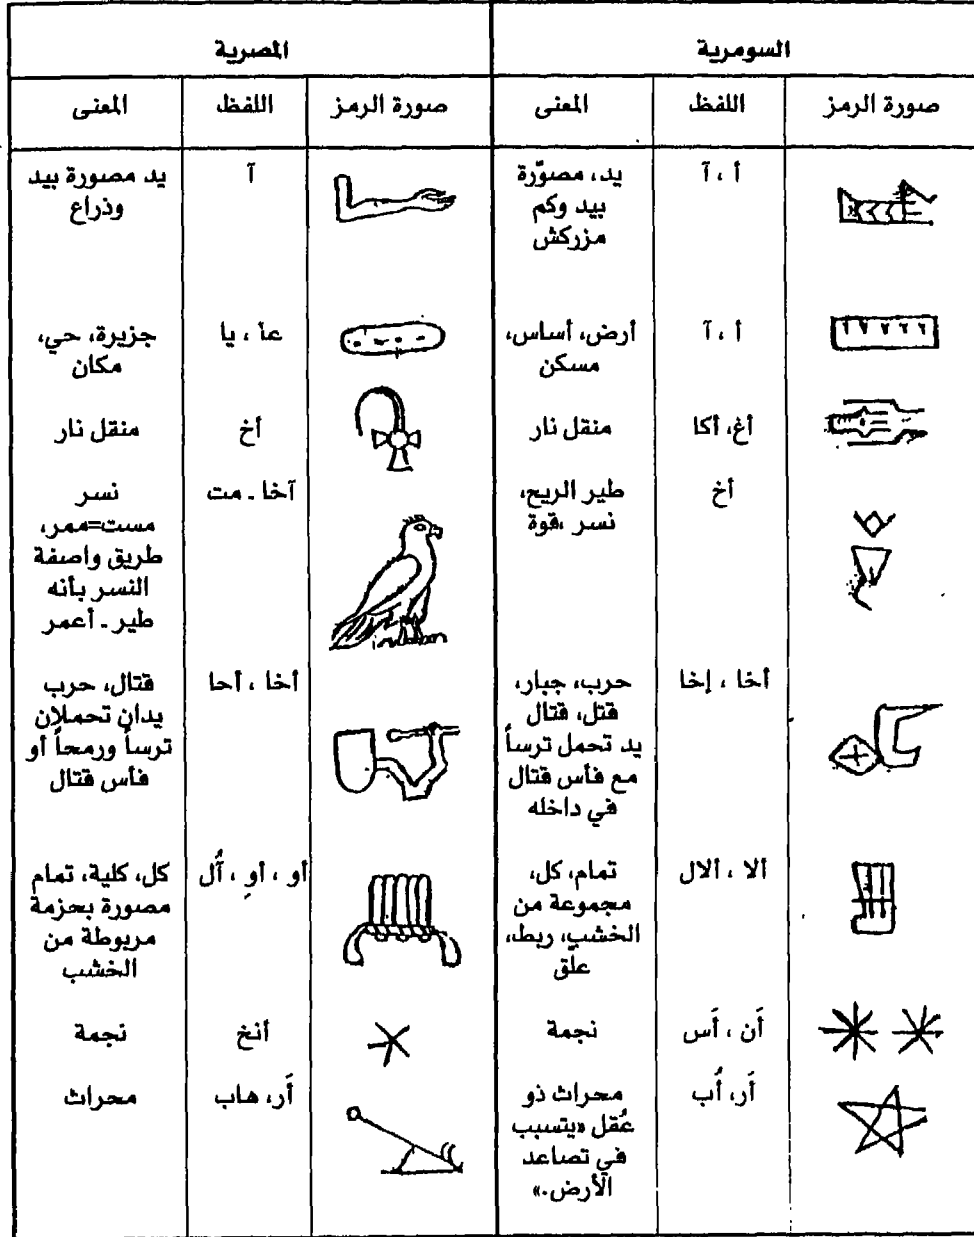 السومرية
المصرية
صورة الرمز
اللفظ
المعنى
صورة الرمز
اللفظ
المعنى
أ ، آ
يد، مصوّرة
بيد وكم
مزركش
آ
يد مصورة بيد
وذراع
أ ، آ
أرض، أساس،
مسكن
عا ، يا
جزيرة، حي،
مكان
أغ، أكا
منقل نار
أخ
منقل نار
أخ
طير الريح،
نسر ،قوة
آخا ـ مت
نسر
مست=ممر،
طريق واصفة
النسر بأنه
طير ـ أعمر
أخا ، إخا
حرب، جبار،
قتل، قتال
يد تحمل ترساً
مع فأس قتال
في داخله
أخا ، أحا
قتال، حرب
يدان تحملان
ترساً ورمحاً أو
فأس قتال
ألا ، ألال
تمام، كل،
مجموعة من
الخشب، ربط،
علّق
أو ، أوِ ، آُل
كل، كلية، تمام
مصورة بحزمة
مربوطة من
الخشب
أَن ، أَس
نجمة
أنخ
نجمة
أَر، أُب
محراث ذو
عُقل «يتسبب
في تصاعد
الأرض.»
أَر، هاب
محراث